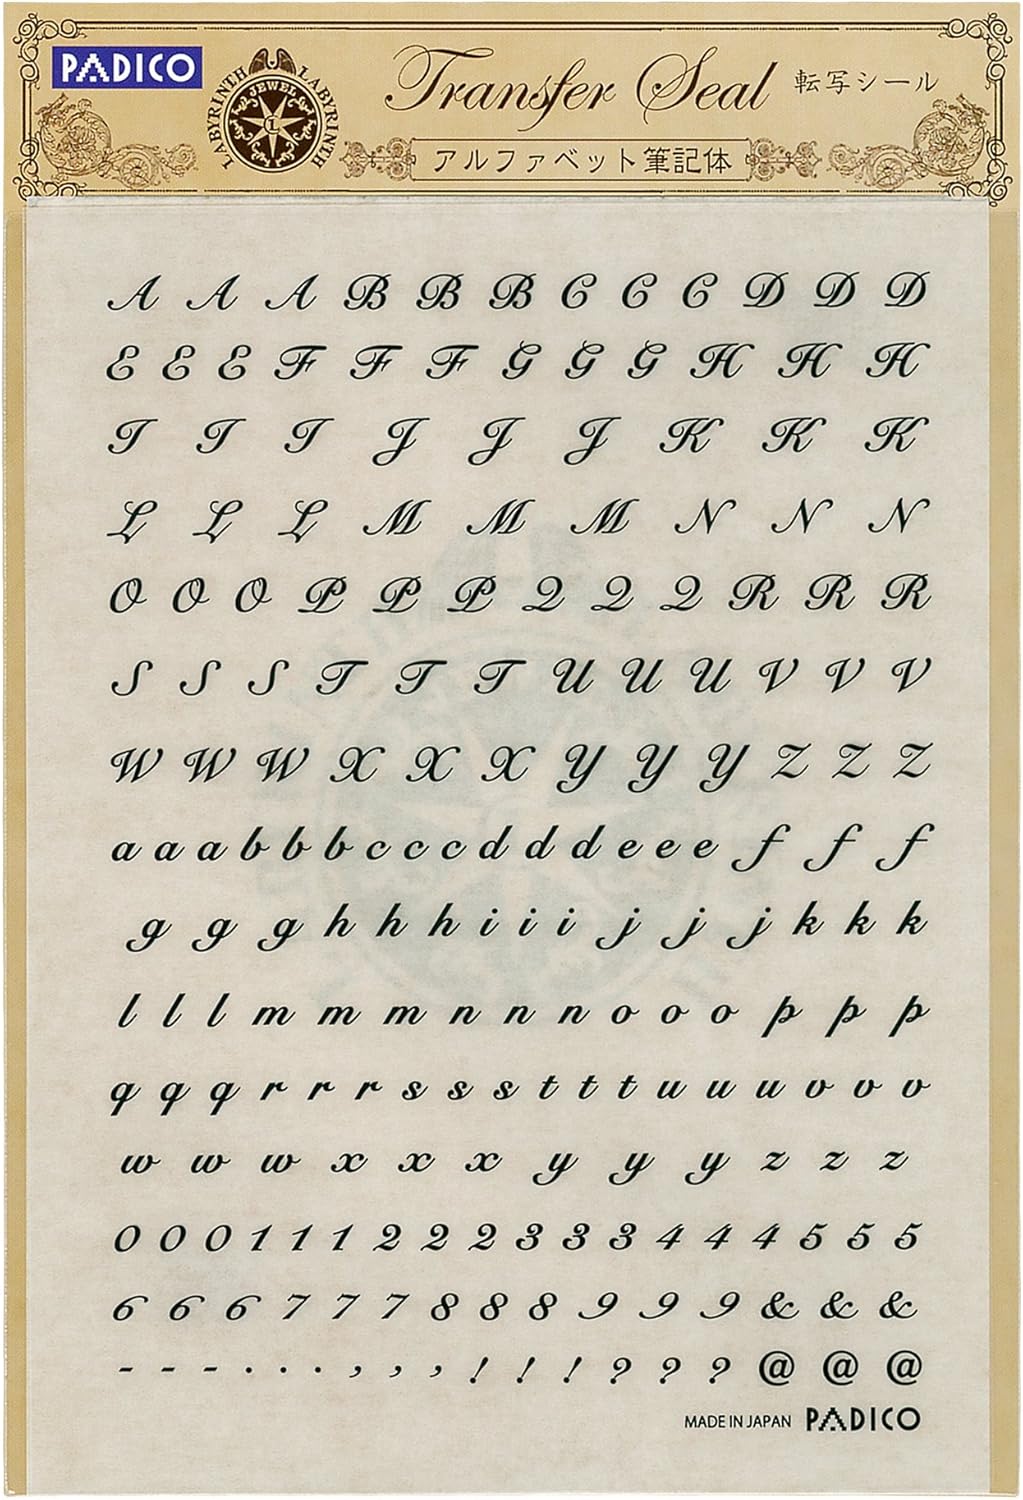 PADICO
LABYRINTH LABYRINTH
JEWEL
L
Transfer Seal 転写シール
アルファベット筆記体
A A A B B B C C C D D D
E E E F F F G G G H H H
I I I J J J K K K
L L L M M M N N N
O O O P P P Q Q Q R R R
S S S T T T U U U V V V
W W W X X X Y Y Y Z Z Z
a a a b b b c c c d d d e e e f f f
g g g h h h i i i j j j k k k
l l l m m m n n n o o o p p p
q q q r r r s s s t t t u u u v v v
w w w x x x y y y z z z
0 0 0 1 1 1 2 2 2 3 3 3 4 4 4 5 5 5
6 6 6 7 7 7 8 8 8 9 9 9 & & &
- - - . . . , , , ! ! ! ? ? ? @ @ @
MADE IN JAPAN PADICO